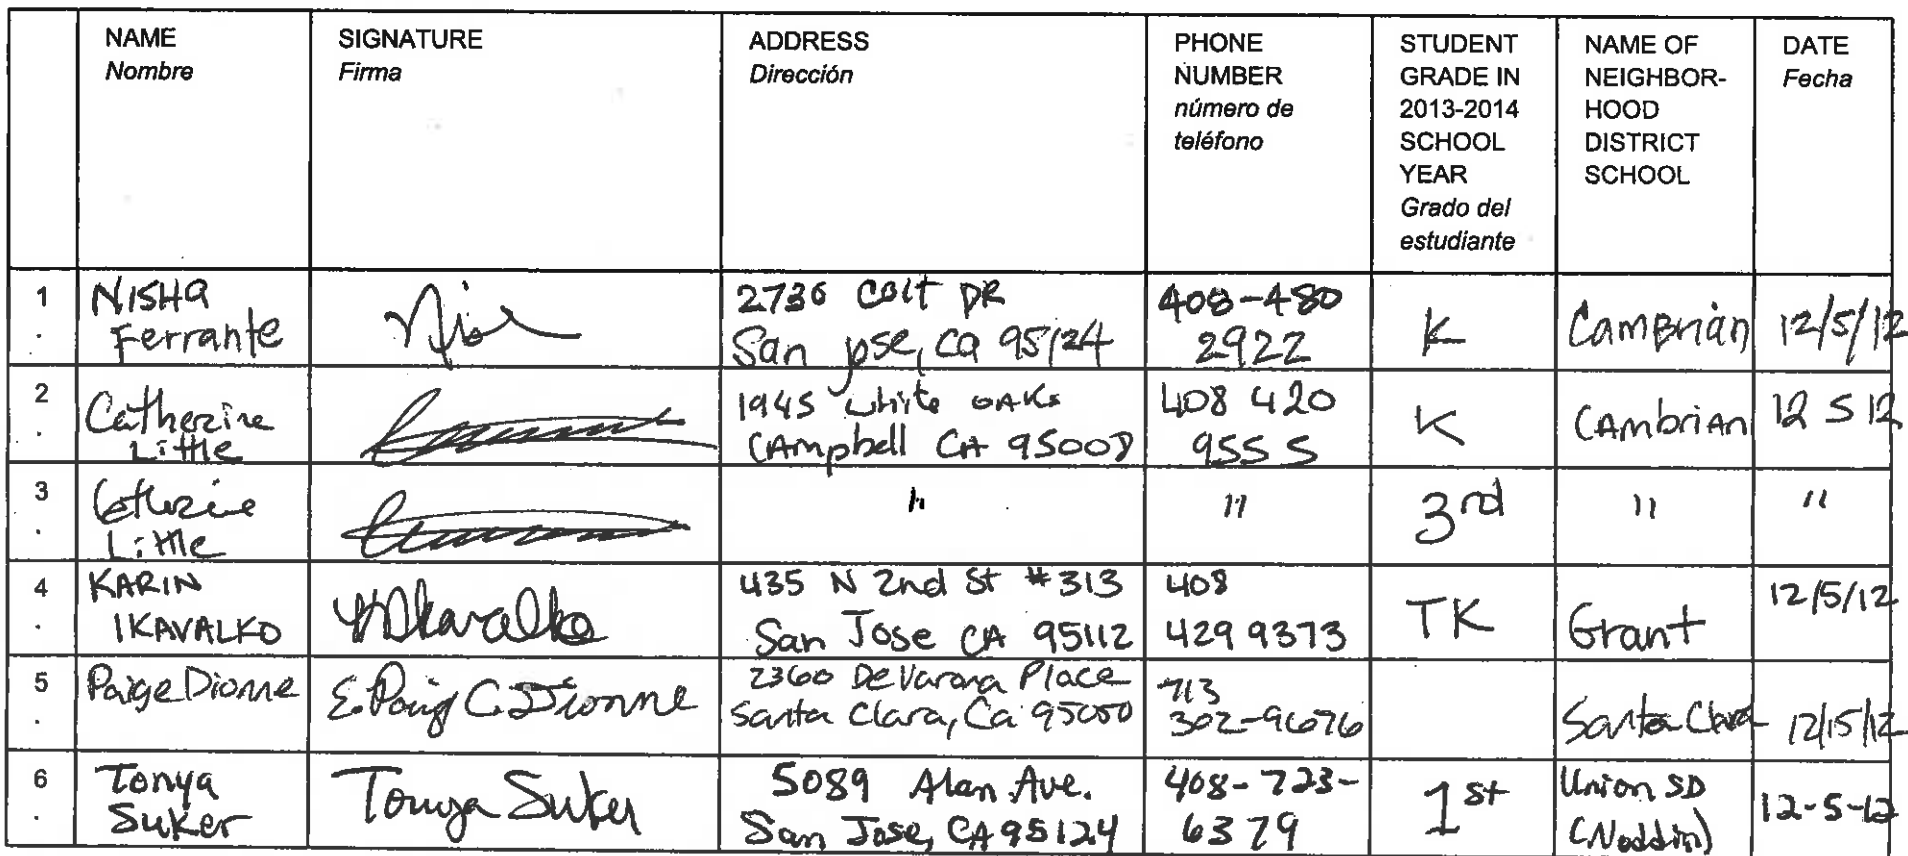 NAME
Nombre
SIGNATURE
Firma
ADDRESS
Dirección
PHONE
NUMBER
número de
teléfono
STUDENT
GRADE IN
2013-2014
SCHOOL
YEAR
Grado del
estudiante
NAME OF
NEIGHBOR-
HOOD
DISTRICT
SCHOOL
DATE
Fecha
1
.
NISHA
Ferrante
2736 Colt DR
San Jose, Ca 95124
408-480
2922
K
Cambrian
12/5/12
2
.
Catherine
Little
1945 White OAKs
CAmpbell CA 95008
408 420
9555
K
CAmbrian
12 5 12
3
.
Catherine
Little
"
"
3rd
"
"
4
.
KARIN
IKAVALKO
KIkavalko
435 N 2nd St #313
San Jose CA 95112
408
429 9373
TK
Grant
12/5/12
5
.
Paige Dionne
E. Paig C. Dionne
2360 De Varona Place
Santa Clara, Ca 95050
713
302-9676
Santa Clara
12/15/12
6
.
Tonya
Suker
Tonya Suker
5089 Alan Ave.
San Jose, CA 95124
408-723-
6379
1st
Union SD
(Noddin)
12-5-12